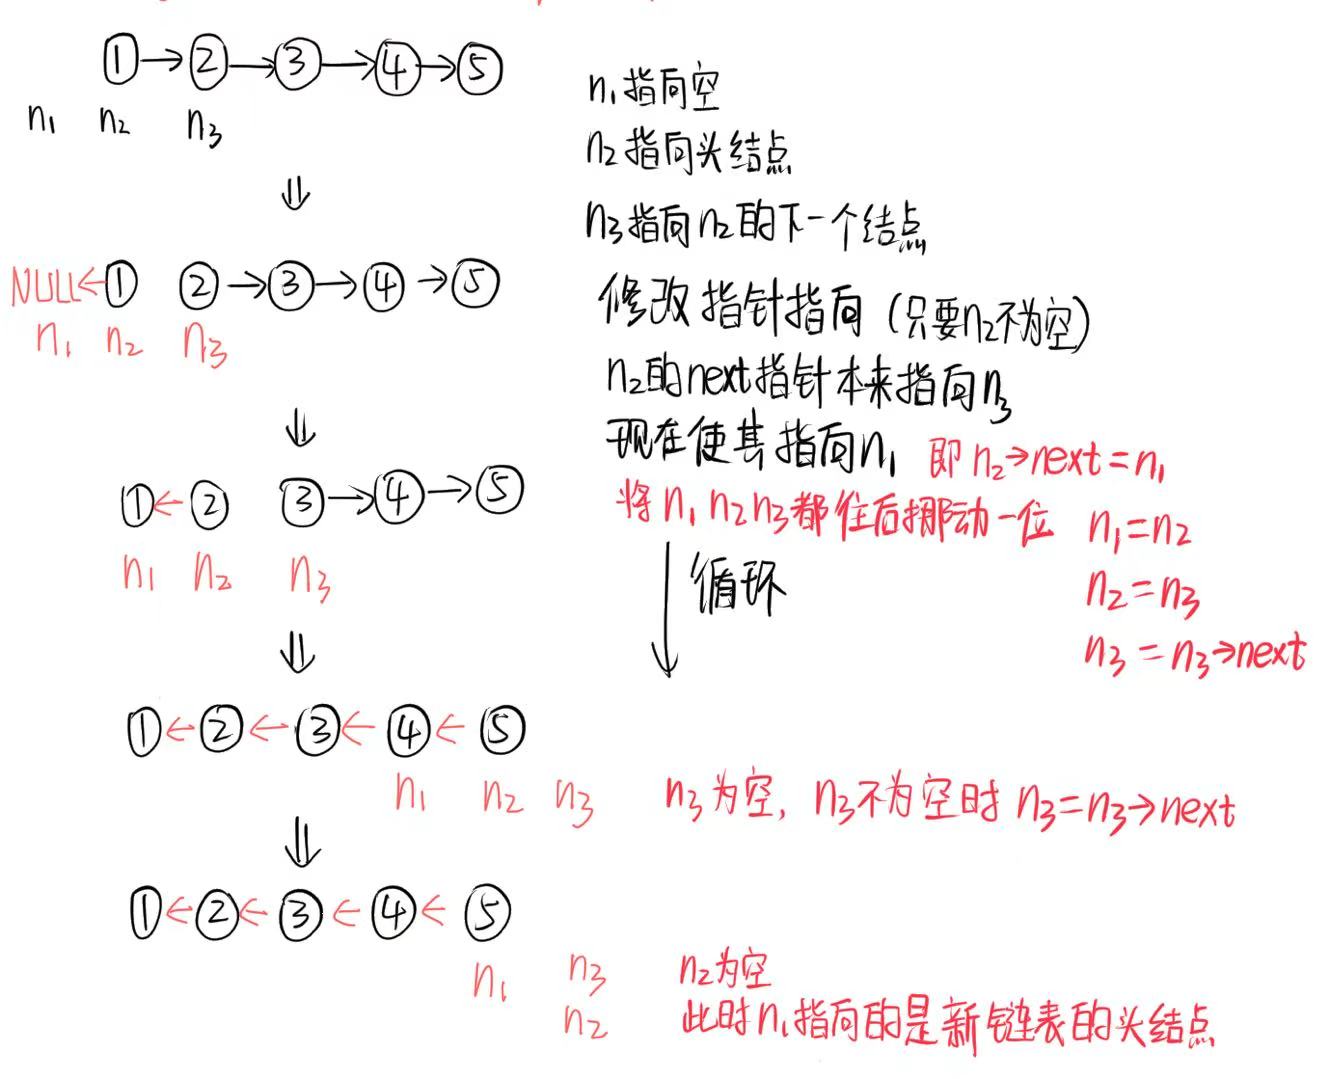 ①→②→③→④→⑤
n₁ n₂ n₃
n₁指向空
n₂指向头结点
n₃指向n₂的下一个结点
⇓
NULL←① ②→③→④→⑤
n₁ n₂ n₃
修改指针指向(只要n₂不为空)
n₂的next指针本来指向n₃
现在使其指向n₁ 即n₂→next=n₁
⇓
①←② ③→④→⑤
n₁ n₂ n₃
将n₁n₂n₃都往后挪动一位 n₁=n₂
n₂=n₃
n₃=n₃→next
↓循环
⇓
①←②←③←④←⑤
n₁ n₂ n₃
n₃为空, n₃不为空时 n₃=n₃→next
⇓
①←②←③←④←⑤
n₁ n₃
n₂
n₂为空
此时n₁指向的是新链表的头结点